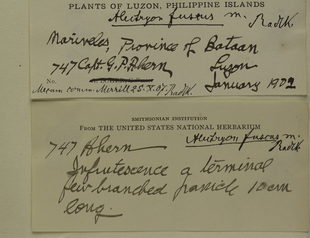 PLANTS OF LUZON, PHILIPPINE ISLANDS
Alectryon fuscus m.
Radlk.
Mariveles, Province of Bataan
747 Capt. G. P. Ahern Luzon
No.
January 1902
Mecum comm. Merrill 25. X. 07. Radlk.
SMITHSONIAN INSTITUTION
FROM THE UNITED STATES NATIONAL HERBARIUM
747 Ahern Alectryon fuscus m.
Radlk
Infrutescence a terminal
few branched panicle 10 cm
long.